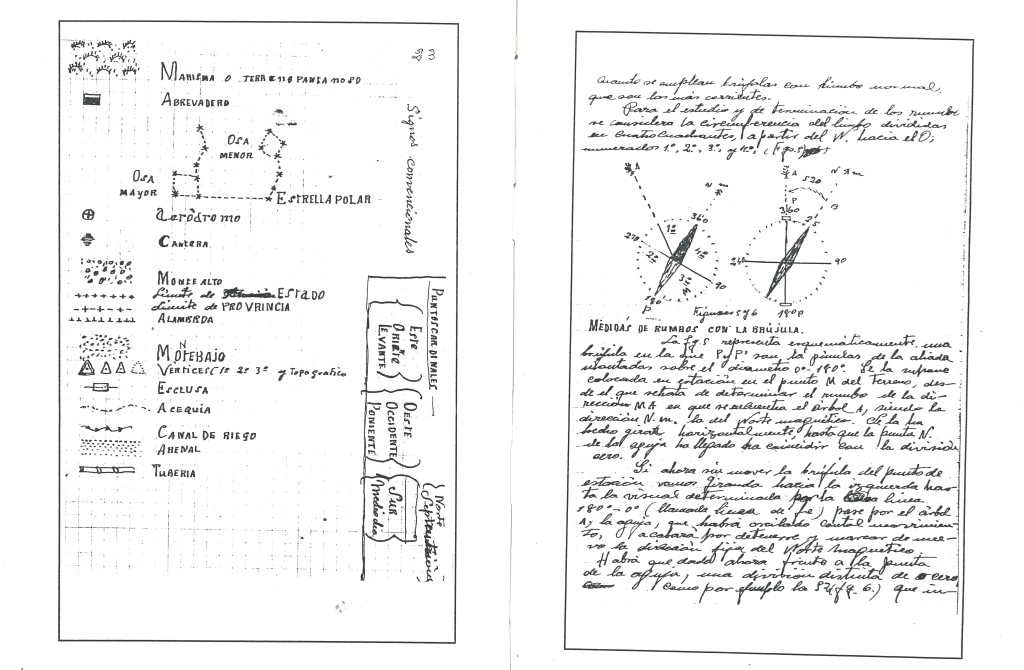 38
Signos convencionales
MARISMA O TERRENO PANTANOSO
ABREVADERO
OSA
MENOR
OSA
MAYOR
ESTRELLA POLAR
Aeródromo
CANTERA
MONTE ALTO
Límite de ESTADO
Límite de PROVINCIA
ALAMBRDA
MONTEBAJO
VÉRTICES (1º 2º 3º y Topográfico
ESCLUSA
ACEQUIA
CANAL DE RIEGO
ARENAL
TUBERIA
PUNTOS CARDINALES
ESTE
ORIENTE
LEVANTE
OESTE
OCCIDENTE
PONIENTE
SUR
Mediodía
Norte
Septentrional
Cuando se emplean brújulas con limbo normal,
que son las más corrientes.
Para el estudio y determinación de los rumbos
se considera la circunferencia del limbo dividida
en cuatro cuadrantes, a partir del N. hacia el O;
numerados 1º, 2º, 3º, y 4º, (Fgs.5)
A
N m
360
1º
270
2º
4º
3º
90
180
P
A
520
N A m
P
B
360
24
90
180 P
Figuras 5 y 6
MEDIDAS DE RUMBOS CON LA BRÚJULA.
La fg.5 representa esquemáticamente una
brújula en la que P y P' son las pínulas de la aliada
montadas sobre el diámetro 0º-180º. Se la supone
colocada en estación en el punto M del Terreno, des-
de el que se trata de determinar el rumbo de la di-
rección MA en que se encuentra el árbol A, siendo la
dirección N.m. la del Norte magnético. Se la ha
hecho girar horizontalmente, hasta que la punta N.
de la aguja ha llegado ha coincidir con la división
cero.
Si ahora sin mover la brújula del punto de
estación vamos girando hacia la izquierda has-
ta la visual determinada por la línea
180º-0º (llamada línea de fe) pase por el árbol
A, la aguja, que habrá oscilado con tal movimien-
to, acabará por detenerse y marcar de nue-
vo la dirección fija del Norte magnético.
Habrá que dado ahora frente a la punta
de la aguja, una división distinta de cero
como por ejemplo la 52 (fg-6.) que in-